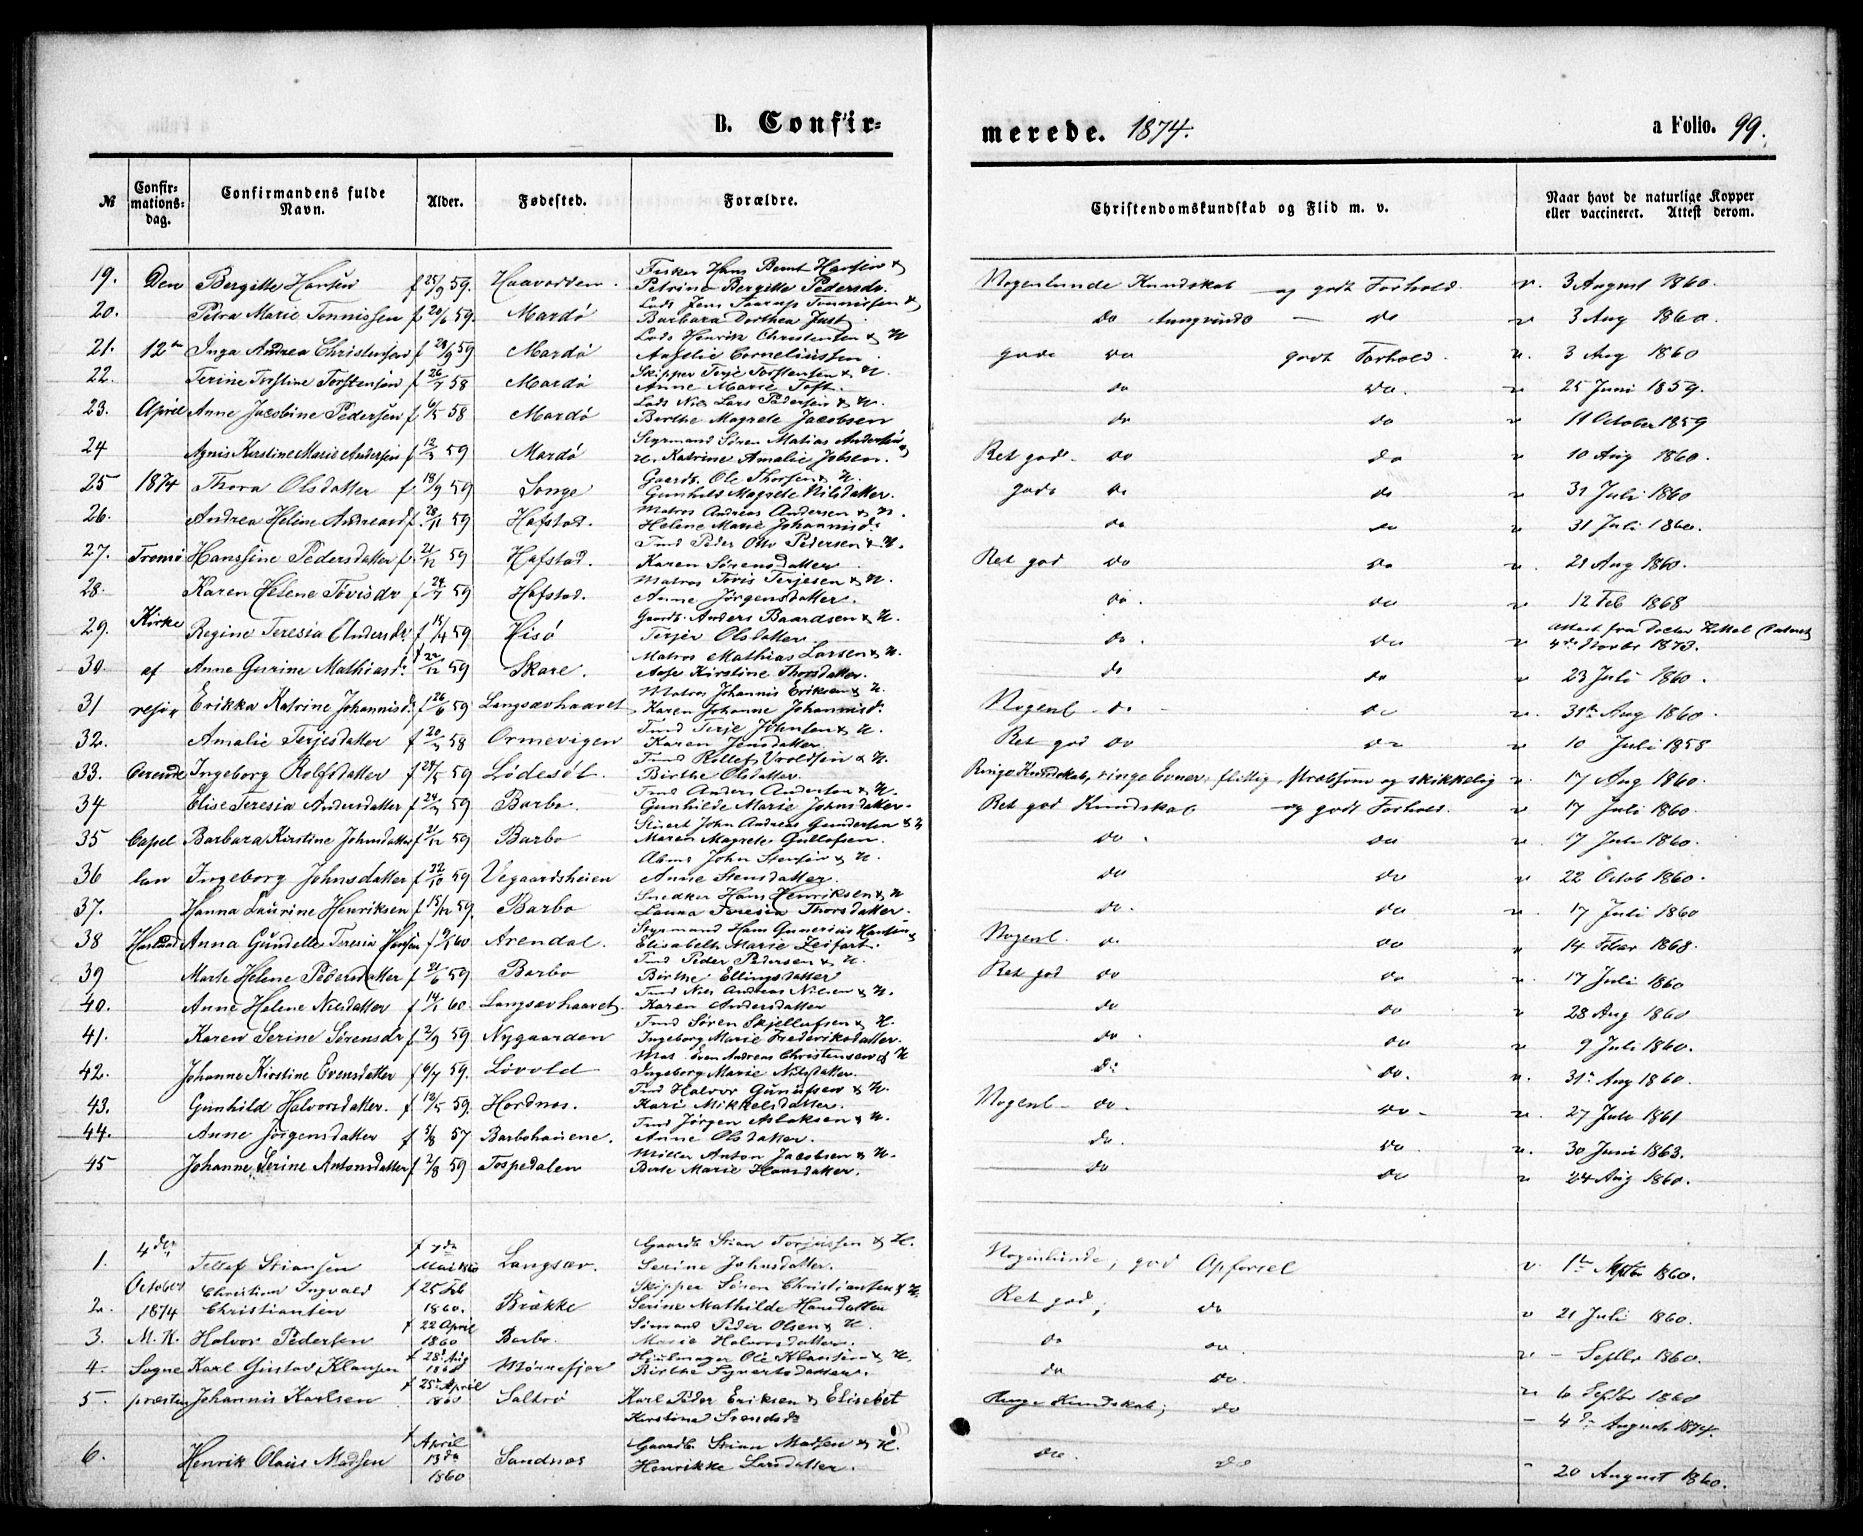 B. Confir-
merede. 1874.
a Folio. 99.
№
Confir-
mations-
dag.
Confirmandens fulde
Navn.
Alder.
Fødested.
Forældre.
Christendomskundskab og Flid m. v.
Naar havt de naturlige Kopper
eller vaccineret. Attest derom.
Fisker Hans Bernt Hansen &
19. Den Bergitte Hansen f 25/9 59. Haavodden Petrine Bergitte Pedersdr. Nogenlunde Kundskab og godt Forhold v. 3 August 1860.
Lods Jens Tønnissen &
20. Petra Marie Tønnissen f 20/6 59. Mærdø Barbara Dorthea Just. do do v 3 Aug 1860.
Lods Henrik Christensen & H
21. 12te Inga Andrea Christensen f 20/9 59 Mærdø Corneliussen god do godt Forhold. v. 3 Aug 1860
Skipper Terje Torstensen & H.
22. Terine Torstine Torstensen f 26/7 58 Mærdø Anne Marie Toft. do do. v 25 Juni 1859.
Lods Nils Lars Pedersen & H.
23. April Anne Jacobine Pedersen f 6/5 58 Mærdø Berthe Magrete Jacobsen do do v 11 October 1859
Styrmand Søren Matias Andersen &
24 Agnis Kirstine Marie Andersen f 12/3 59 Mærdø H. Katrine Amalie Jobsen. Ret god. do do v 10 Aug 1860.
Gaardb. Ole Thorsen & H.
25 1874 Thora Olsdatter f. 18/9 59 Songe Gunhild Magrete Nilsdatter. god do do v 31 Juli 1860
Matros Andreas Andersen & H.
26. Andrea Heline Andreasd f. 28/11 59 Hofstad. Helene Marie Johannisdr do do v 31 Juli 1860.
Tmd Peder Otto Pedersen & H.
27. Tromø Hansine Pedersdatter f. 21/12 59 Hofstad. Karen Sørensdatter. Ret god do do v. 21 Aug 1860.
Matros Tovis Terjesen & H.
28. Karen Helene Tovisdr f 24/7 59 Hofstad. Anne Jørgensdatter. do. do v 12 Feb 1868
Gaardb. Anders Baardsen & H. Attest fra Doctor
29. Kirke Regine Teresia Andersdr f 15/4 59 Hisø Olsdatter. do. do v 4de Novbr 1873.
Matros Mathias Larsen & H.
30 af Anne Gurine Mathiasdr f 22/12 59 Skare. Aase Kirstine Thorsdatter. do do v 23 Juli 1860.
Matros Johannis Eriksen & H.
31 Erikka Katrine Johannisd. f 26/6 59 Langsævhaavet Karen Johanne Johannisd. Nogenl. do do v. 31te Aug 1860.
Tmd Terje Johnsen & H.
32. Amalie Terjesdatter f 20/3 58 Ormevigen Karen Jensdatter. Ret god do do v. 10 Juli 1858
Tmd Rollef Vroldsen & H.
33. Ingeborg Rolfsdatter f 28/5 59 Lødesøl. Birthe Olsdatter. Ringe Kundskab, ringe Evner, flittig, stræbsom og skikkelig v. 17 Aug 1860.
Tmd Anders Andersen & H.
34 Elise Teresia Andersdatter f 24/3 59 Barbo. Gunhilde Marie Johnsdatter. Ret god Kundskab og godt Forhold. v 17 Juli 1860.
Stuert John Andreas Gundersen & H
35 Capel Barbara Kirstine Johnsdatter f 2/12 59 Barbo Maren Magrete Gullofsen. do. do v 17 Juli 1860.
John Stensen & H.
36 lan Ingeborg Johnsdatter f 22/10 59 Vegaardsheien Anne Stensdatter. do do v 22 Octob 1860.
Snedker Hans Henriksen & H
37. Hanna Laurine Henriksen f 15/12 59. Barbo Launa Teresia Thorsdatter. do. do v. 17 Juli 1860
Styrmand Hans Gunerius Hansen &
38 Anna Gundelle Teresia Hansen f 9/1 60 Arendal. Elisabeth Marie Zeifart. Nogenl. do do v 14 Febr 1868.
Tmd Peder Pedersen & H.
39 Marte Helene Pedersdatter f 21/6 59 Barbo Birthe Ellingsdatter Ret god do do v. 17 Juli 1860
Tmd Nils Andreas Nilsen & H.
40. Anne Helene Nilsdatter f 14/1 60. Langsævhaavet. Karen Andersdatter do do v 28 Aug 1860
Tmd Søren Skjellufsen & H.
41. Karen Serine Sørensdr f 2/9 59. Nygaarden Ingeborg Marie Frederiksdatter. do. do v 9 Juli 1860.
Mat. Even Andreas Christensen & H
42. Johanne Kirstine Evensdatter f 6/7 59. Løvold Ingeborg Marie Nilsdatter. do do. v. 31te Aug 1860.
Tmd Halvor Gunufsen & H.
43. Gunhild Halvorsdatter. f 12/5 59. Hordnes. Kari Mikkelsdatter. Nogenl do. do. v. 27 Juli 1861
Tmd Jørgen Aslaksen & H
44. Anne Jørgensdatter f 5/8 57 Barbohaüene. Anne Olsdatter. do. do v. 30 Juni 1863.
Møller Anton Jacobsen & H.
45 Johanne Serine Antonsdatter f 2/8 59 Tospedalen Berte Marie Hansdatter. do do v 24 Aug 1860.
4de f 7de Gaardb Stian Torjussen & H.
1. Tellef Stiansen Mai 1860 Langsæv. Serine Johnsdatter. Nogenlunde, god Opførsel v. 1te Septbr 1860.
October Christian Ingvald f 25 Feb Skipper Søren Christiansen & H.
2. 1874 Christiansen 1860. Brække Serine Mathilde Hansdatter Ret god, do v 21 Juli 1860.
f 22 April Sømand Peder Olsen & H.
3. M. K. Halvor Pedersen 1860 Barbo. Marie Halvorsdatter. do do. v - Septbr 1860.
f 28de Aug Hjulmager Ole Klausen & H.
4. Sogne Karl Gustav Klausen 1860 Birthe Syvertsdatter. do do. v 6 Septbr 1860
f 25de April
5. præsten Johannis Karlsen 1860 Saltrø Karl Peder Eriksen & Elisebet Ringe Kundskab; do - 4de August 1874.
Kirstine Svendsdr
f April Gaardb. Stian Madsen & H.
6. Henrik Olaus Madsen 13de Sandnes Henrikke Larsdatter. do. do - 20 August 1860.
1860